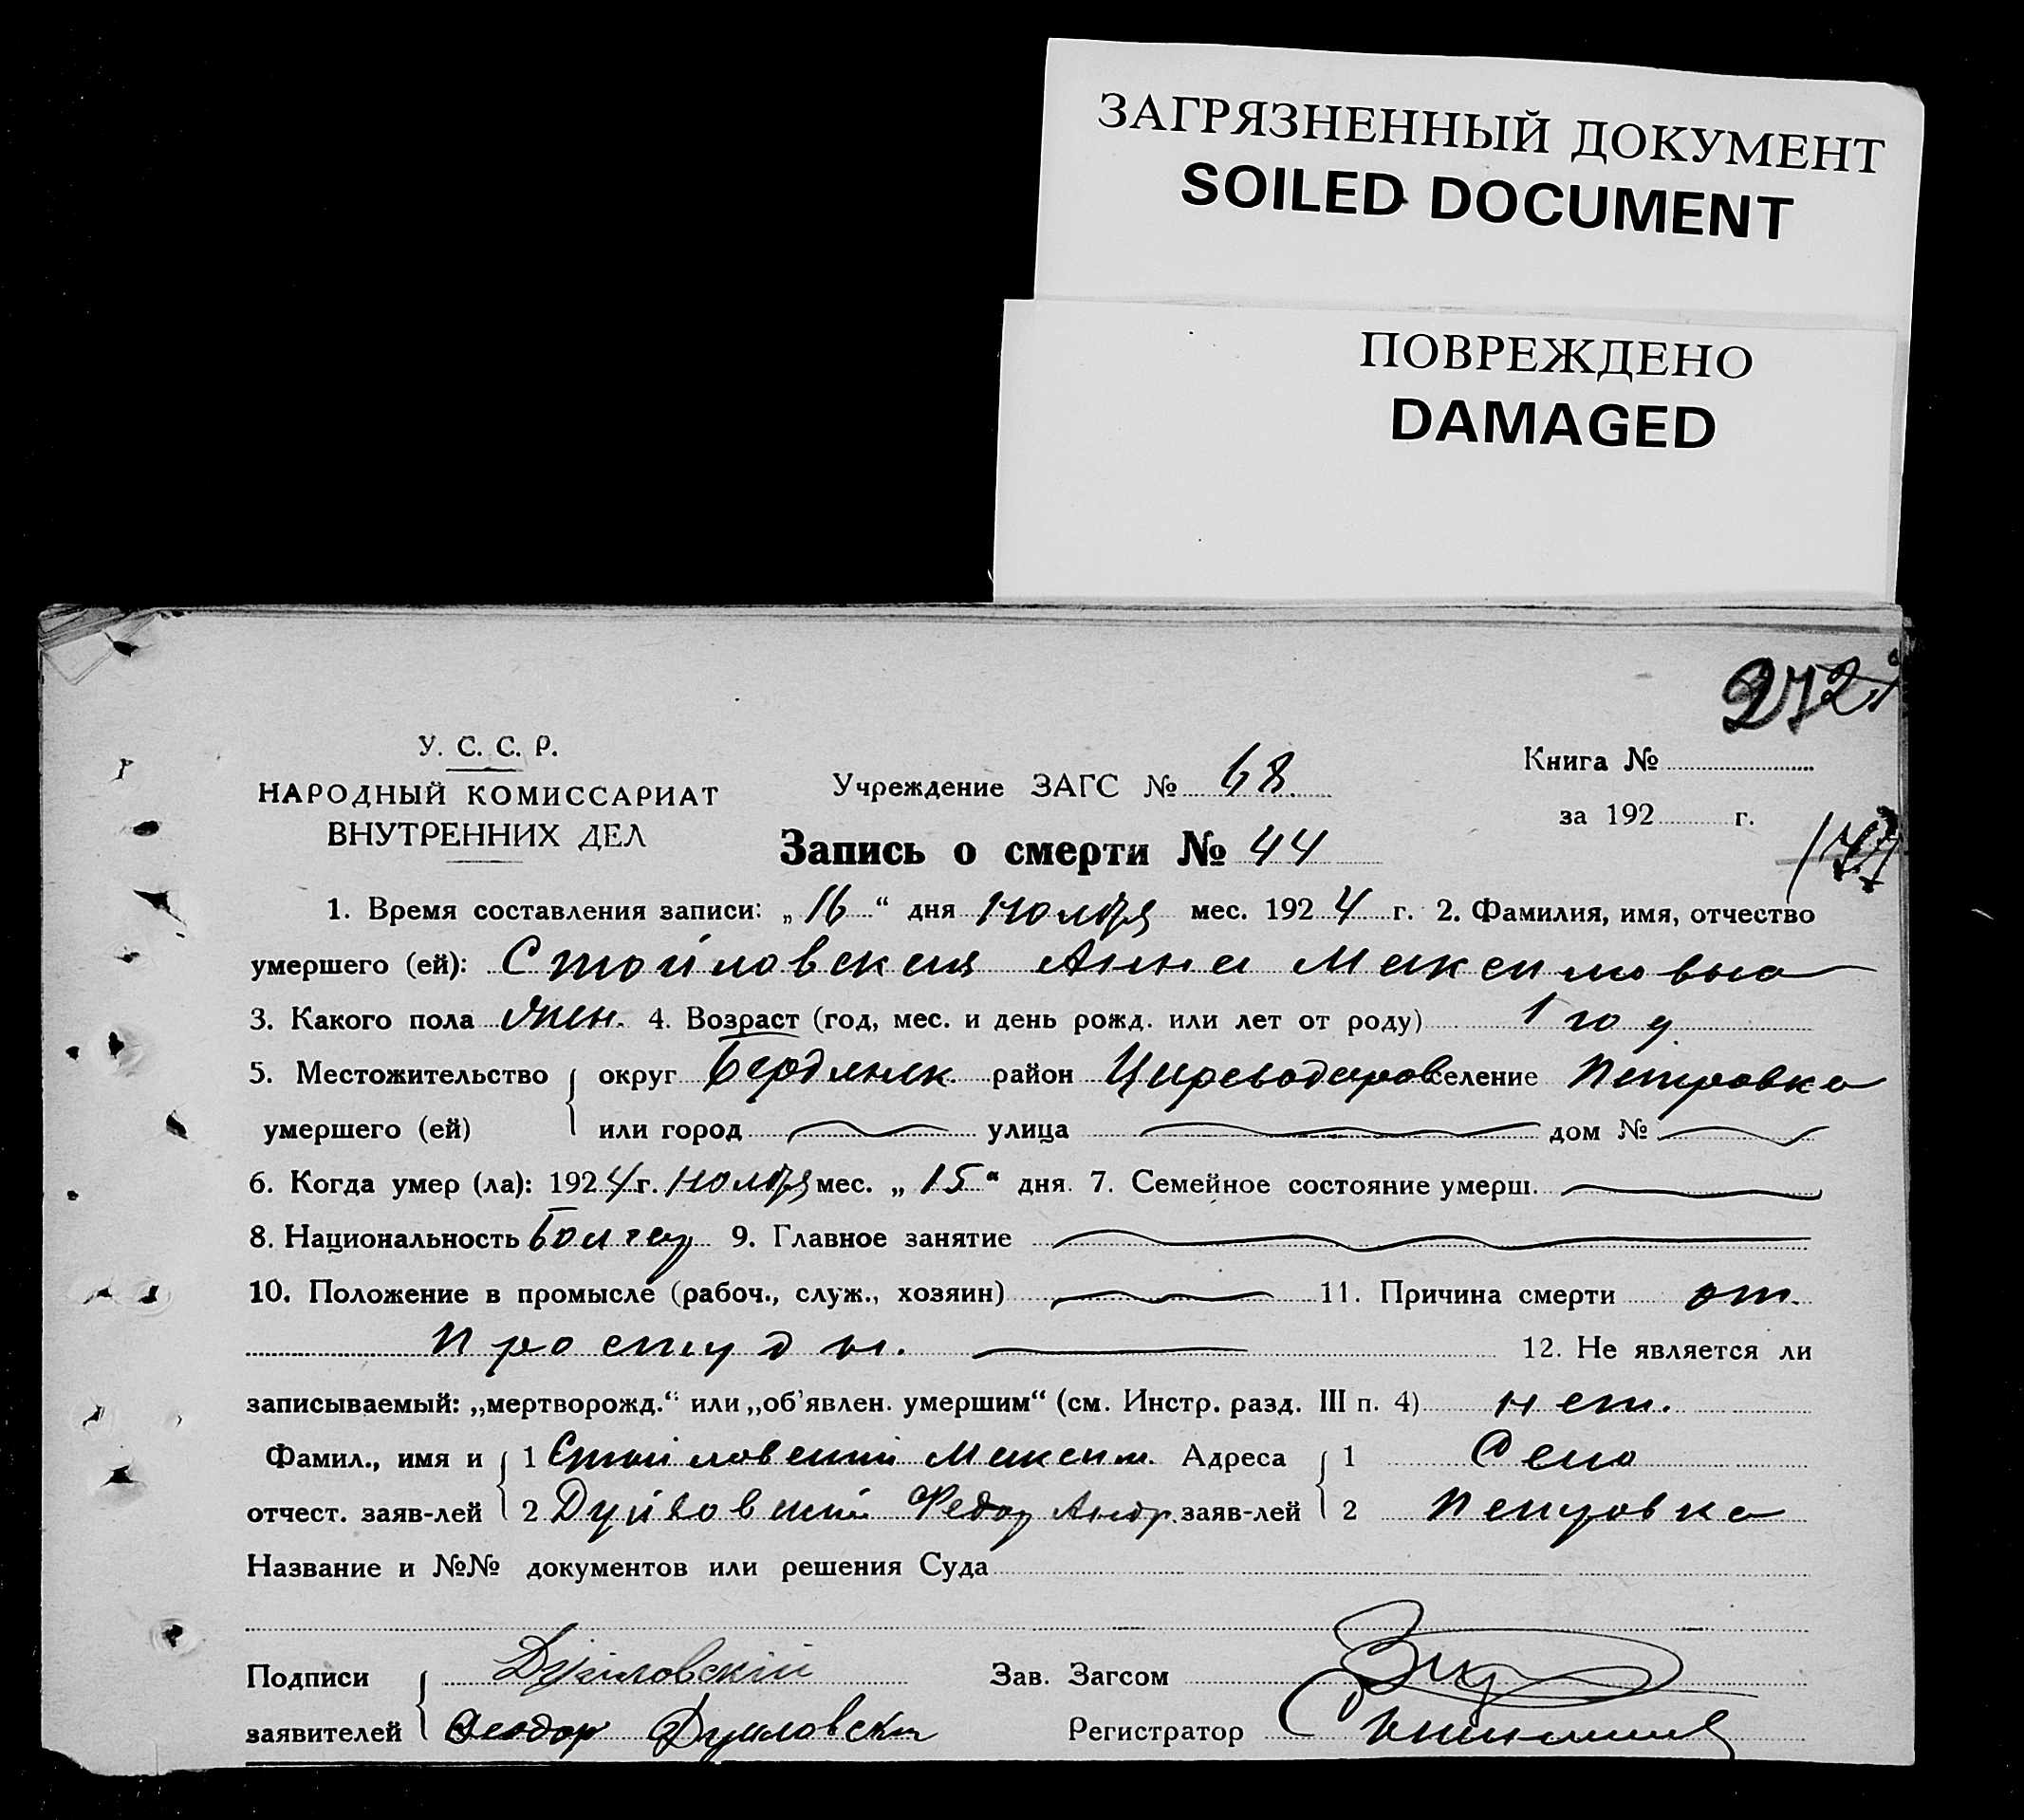 ЗАГРЯЗНЕННЫЙ ДОКУМЕНТ
SOILED DOCUMENT
ПОВРЕЖДЕНО
DAMAGED
272
У. С. С. Р.
НАРОДНЫЙ КОМИССАРИАТ
ВНУТРЕННИХ ДЕЛ
Учреждение ЗАГС № 68.
Книга №
за 192 г.
Запись о смерти № 44
1. Время составления записи: „16“ дня Ноября мес. 1924 г. 2. Фамилия, имя, отчество
умершего (ей): Стойловская Анна Максимовна
3. Какого пола жен. 4. Возраст (год, мес. и день рожд. или лет от роду) 1 год
5. Местожительство умершего (ей) округ Бердянск. район Цареводаров селение Петровка
или город улица дом №
6. Когда умер (ла): 1924 г. Ноября мес. „15“ дня. 7. Семейное состояние умерш.
8. Национальность Болгар 9. Главное занятие
10. Положение в промысле (рабоч., служ., хозяин) 11. Причина смерти от
простуды.
12. Не является ли
записываемый: „мертворожд.“ или „об'явлен. умершим“ (см. Инстр. разд. III п. 4) нет.
Фамил., имя и 1 Стойловский Максим. Адреса 1 Село
отчест. заяв-лей 2 Федор Андр. заяв-лей 2 Петровка
Название и №№ документов или решения Суда
Подписи Зав. Загсом
заявителей Феодор Регистратор